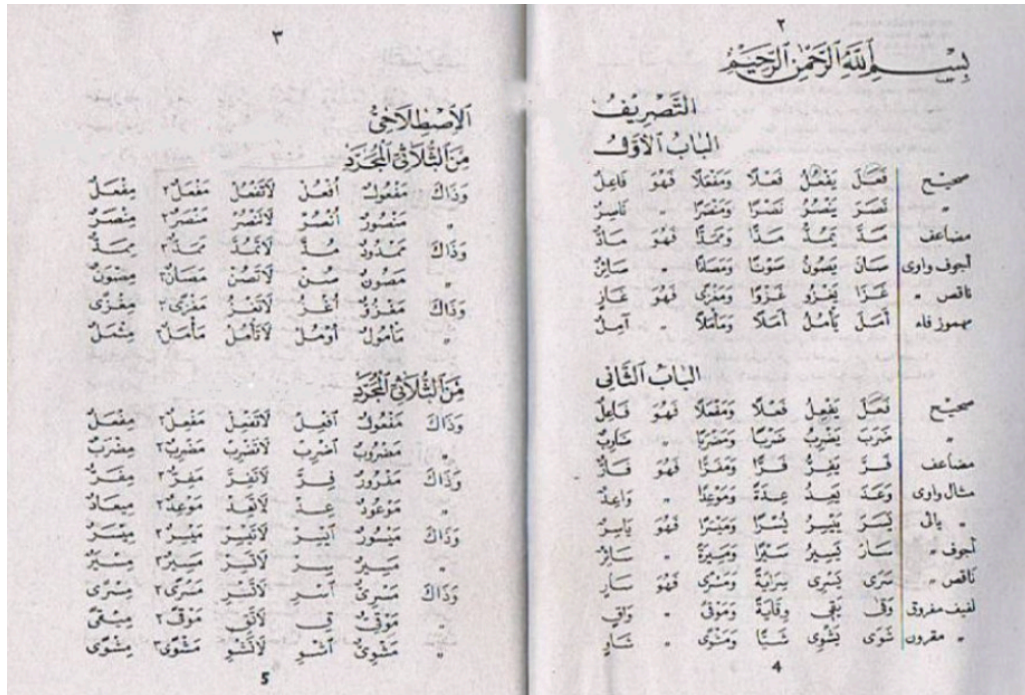 ٢
بِسْمِ اللهِ الرَّحْمٰنِ الرَّحِيْمِ
التَّصْرِيفُ
البَابُ الأَوَّلُ
صحيح فَعَلَ يَفْعُلُ فَعْلًا وَمَفْعَلًا فَهُوَ فَاعِلٌ
" نَصَرَ يَنْصُرُ نَصْرًا وَمَنْصَرًا " نَاصِرٌ
مضاعف مَدَّ يَمُدُّ مَدًّا وَمَمَدًّا فَهُوَ مَادٌّ
أجوف واوى صَانَ يَصُونُ صَوْنًا وَمَصَانًا " صَائِنٌ
ناقص " غَزَا يَغْزُو غَزْوًا وَمَغْزًى فَهُوَ غَازٍ
مهموز فاء أَمَلَ يَأْمُلُ أَمَلًا وَمَأْمَلًا " آمِلٌ
البَابُ الثَّانِى
صحيح فَعَلَ يَفْعِلُ فَعْلًا وَمَفْعَلًا فَهُوَ فَاعِلٌ
" ضَرَبَ يَضْرِبُ ضَرْبًا وَمَضْرَبًا " ضَارِبٌ
مضاعف فَرَّ يَفِرُّ فَرًّا وَمَفَرًّا فَهُوَ فَارٌّ
مثال واوى وَعَدَ يَعِدُ عِدَةً وَمَوْعِدًا " وَاعِدٌ
" يائى يَسَرَ يَيْسِرُ يُسْرًا وَمَيْسَرًا فَهُوَ يَاسِرٌ
أجوف " سَارَ يَسِيرُ سَيْرًا وَمَسِيرَةً " سَائِرٌ
ناقص " سَرَى يَسْرِى سِرَايَةً وَمَسْرًى فَهُوَ سَارٍ
لفيف مفروق وَقَى يَقِى وِقَايَةً وَمَوْقًى " وَاقٍ
" مقرون شَوَى يَشْوِى شَيًّا وَمَشْوًى " شَاوٍ
4
٣
اَلْاِصْطِلَاحِىُّ
مِنَ الثُّلَاثِىِّ الْمُجَرَّدِ
وَذَاكَ مَفْعُولٌ اُفْعُلْ لَاتَفْعُلْ مَفْعَلٌ٢ مِفْعَلٌ
" مَنْصُورٌ اُنْصُرْ لَاتَنْصُرْ مَنْصَرٌ٢ مِنْصَرٌ
وَذَاكَ مَمْدُودٌ مُدَّ لَاتَمُدَّ مَمَدٌّ٢ مِمَدٌّ
" مَصُونٌ صُنْ لَاتَصُنْ مَصَانٌ٢ مِصْوَنٌ
وَذَاكَ مَغْزُوٌّ اُغْزُ لَاتَغْزُ مَغْزًى٢ مِغْزًى
" مَأْمُولٌ اُوْمُلْ لَاتَأْمُلْ مَأْمَلٌ٢ مِئْمَلٌ
مِنَ الثُّلَاثِىِّ الْمُجَرَّدِ
وَذَاكَ مَفْعُولٌ اِفْعِلْ لَاتَفْعِلْ مَفْعِلٌ٢ مِفْعَلٌ
" مَضْرُوبٌ اِضْرِبْ لَاتَضْرِبْ مَضْرِبٌ٢ مِضْرَبٌ
وَذَاكَ مَفْرُورٌ فِرَّ لَاتَفِرَّ مَفِرٌّ٢ مِفَرٌّ
" مَوْعُودٌ عِدْ لَاتَعِدْ مَوْعِدٌ٢ مِيعَادٌ
وَذَاكَ مَيْسُورٌ اِيْسِرْ لَاتَيْسِرْ مَيْسِرٌ٢ مِيْسَرٌ
" مَسِيرٌ سِرْ لَاتَسِرْ مَسِيرٌ٢ مِسْيَرٌ
وَذَاكَ مَسْرِىٌّ اِسْرِ لَاتَسْرِ مَسْرًى٢ مِسْرًى
" مَوْقِىٌّ قِ لَاتَقِ مَوْقًى٢ مِيْقًى
" مَشْوِىٌّ اِشْوِ لَاتَشْوِ مَشْوًى٢ مِشْوًى
5